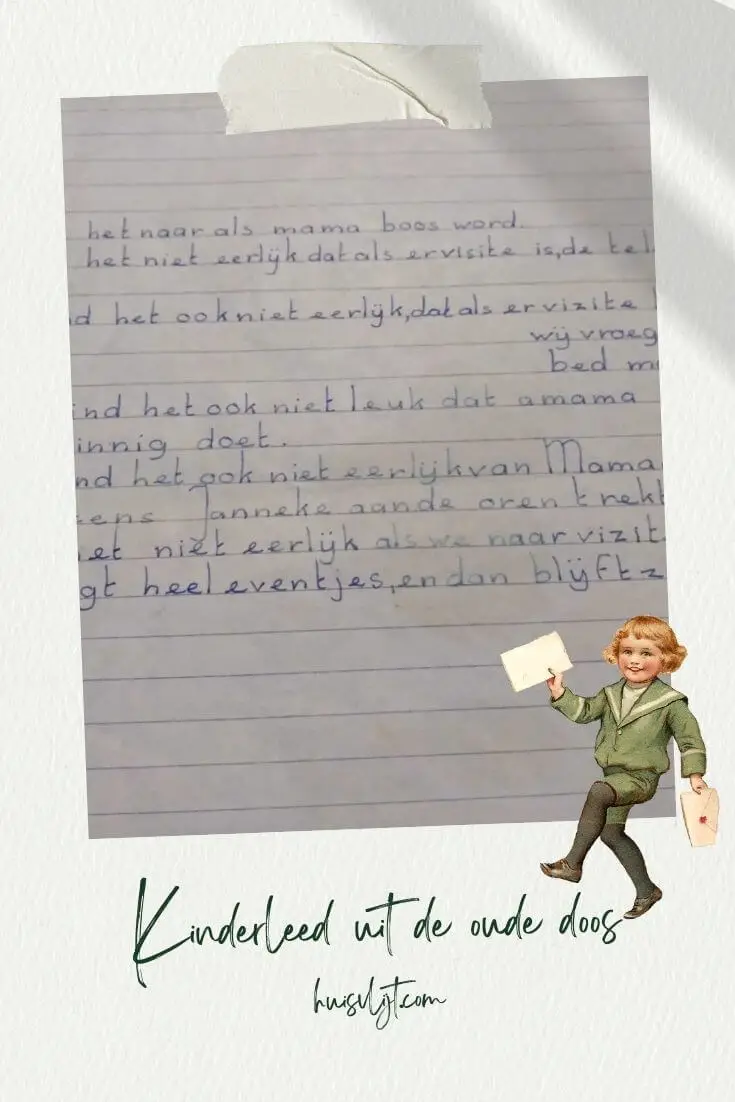 het naar als mama boos word.
het niet eerlijk dat als er visite is, de tel
d het ook niet eerlijk, dat als er vizite
wij vroeg
bed m
ind het ook niet leuk dat amama
innig doet.
nd het ook niet eerlijk van Mama
eens Janneke aande oren trekt
et niet eerlijk als we naar vizit
gt heel eventjes, en dan blijft z
Kinderleed uit de oude doos
huisvlijt.com